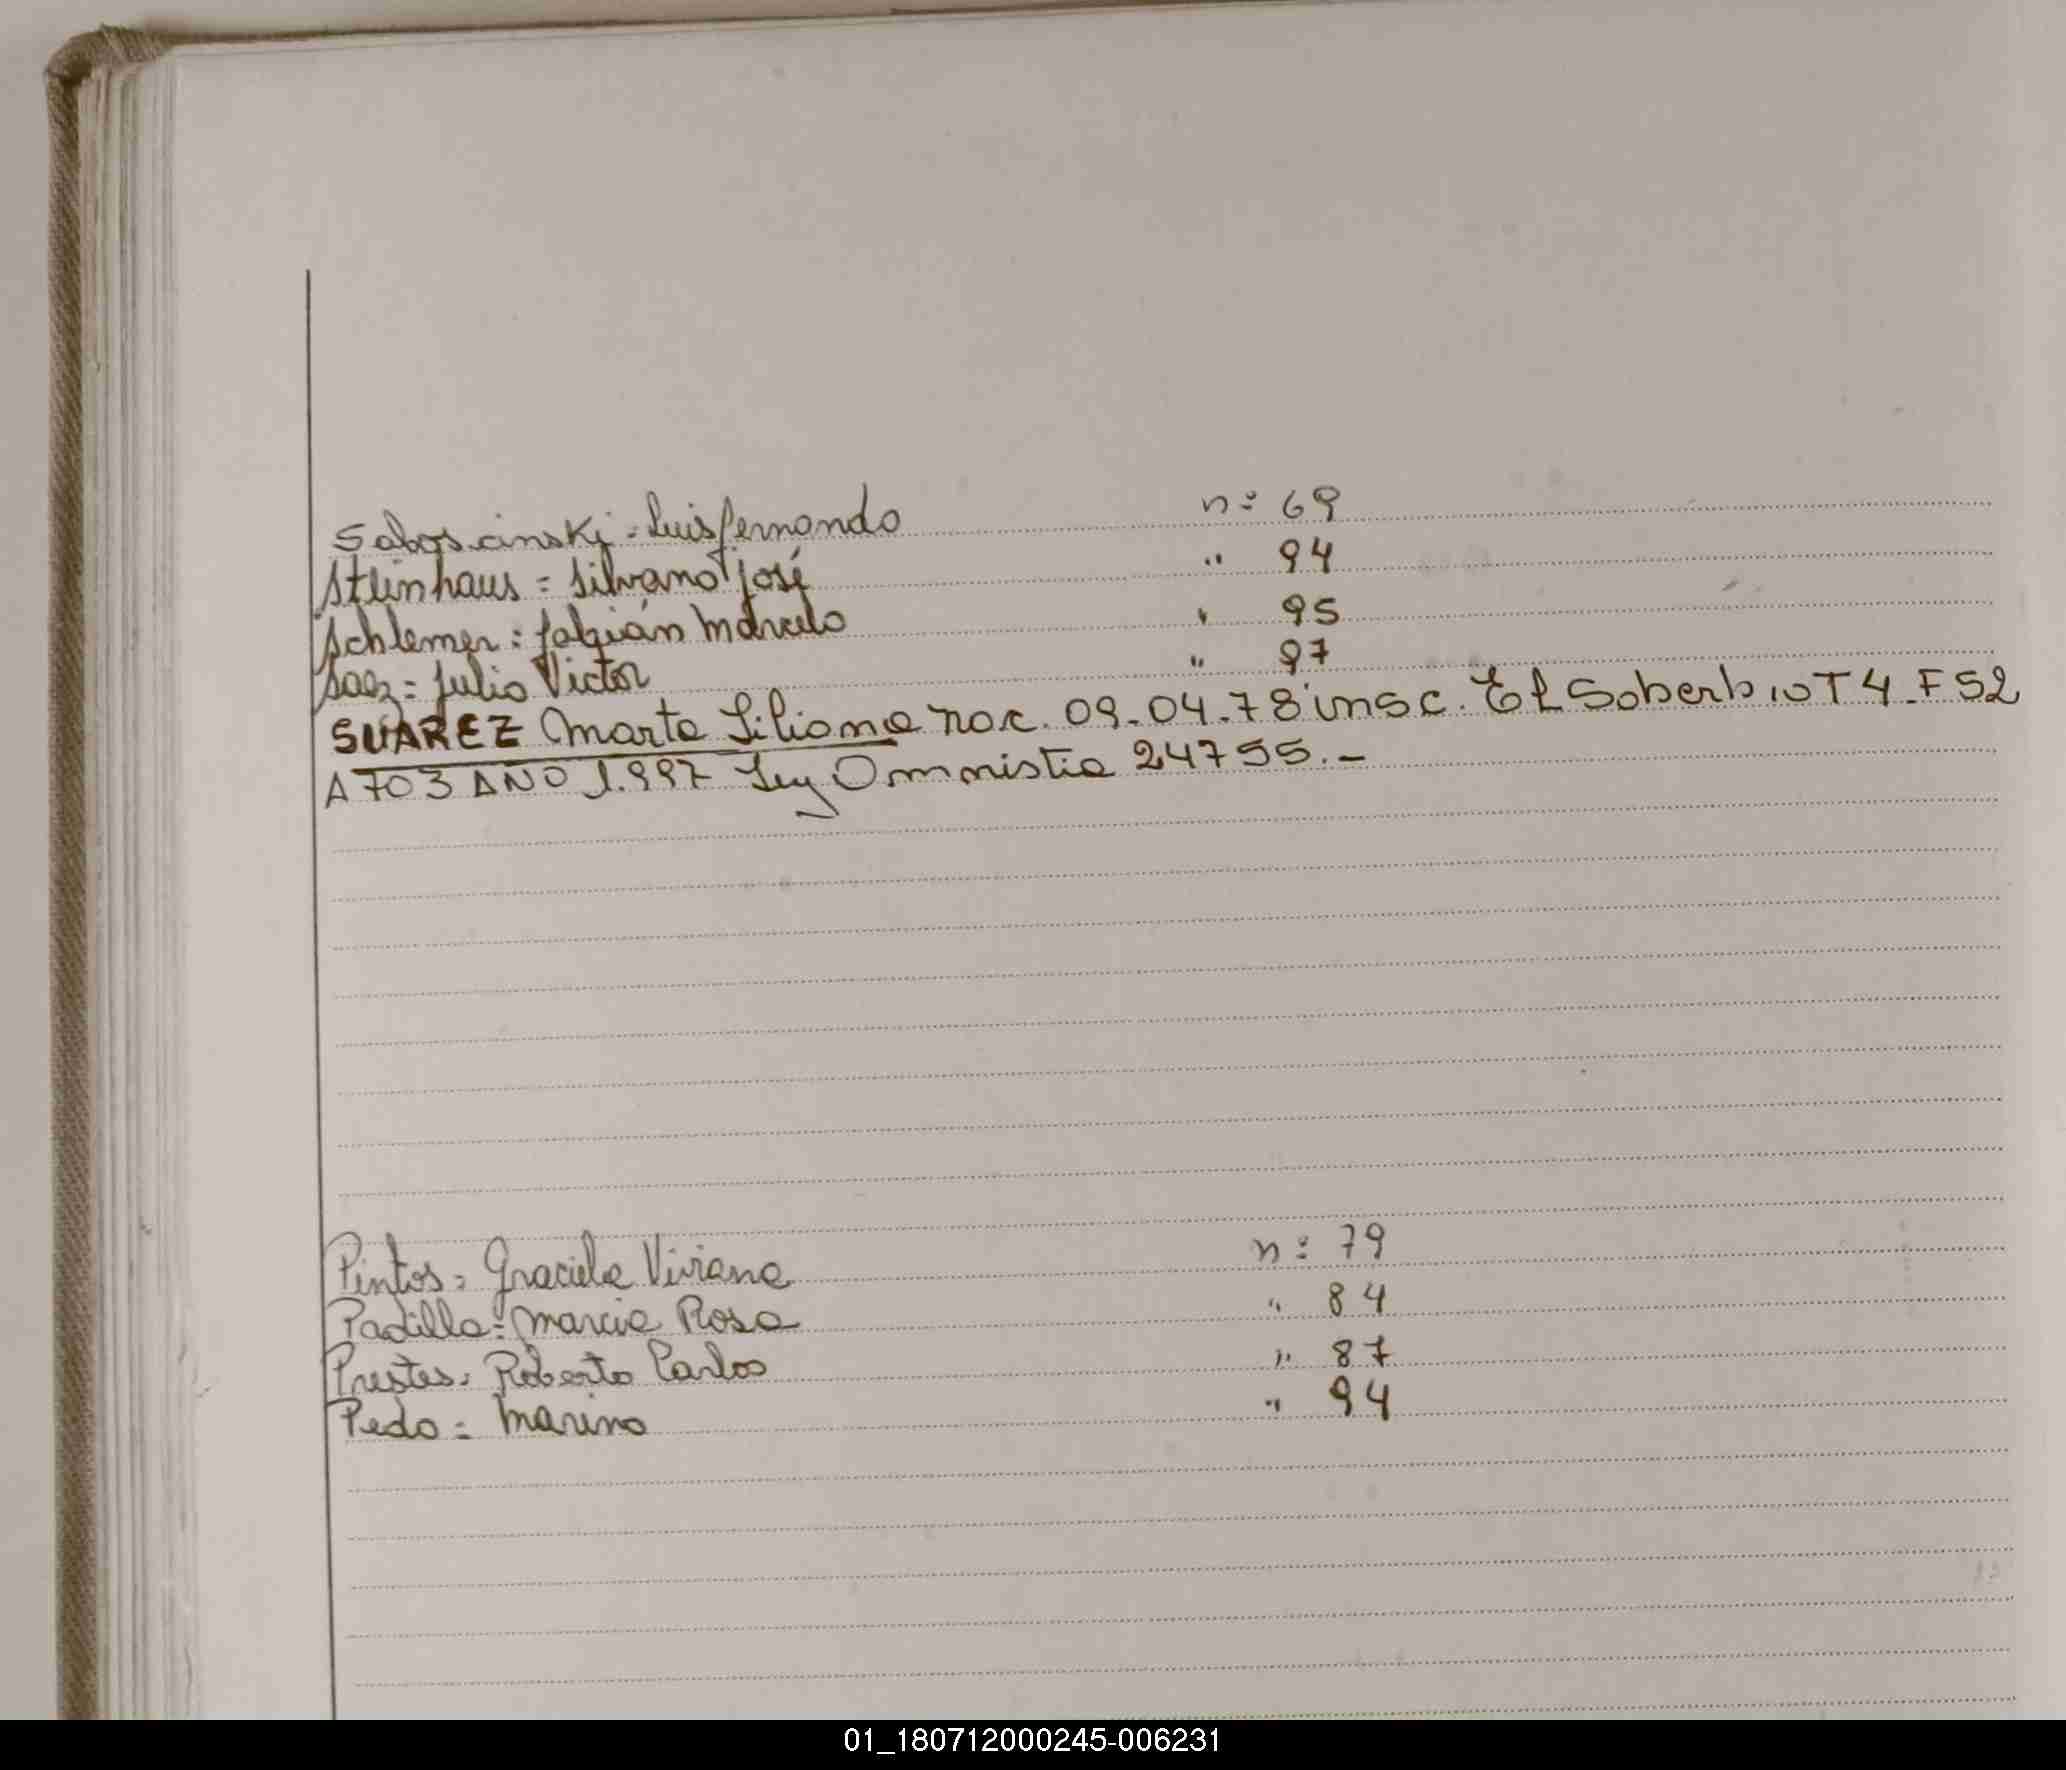 Saboscinski = Luis fernando n: 69
Steinhaus = Silvano José " 94
Schlemer: fabián Marcelo " 95
Saez = Julio Victor " 97
SUAREZ Marta Liliana nac. 09-04-78 insc. El Soberbio T 4 - F 52
A 703 AÑO 1.997 Ley Amnistia 24755.-
Pintos = Graciela Viviana n: 79
Padilla = Marcia Rosa " 84
Prestes = Roberto Carlos " 87
Pedo = Marino " 94
01_180712000245-006231